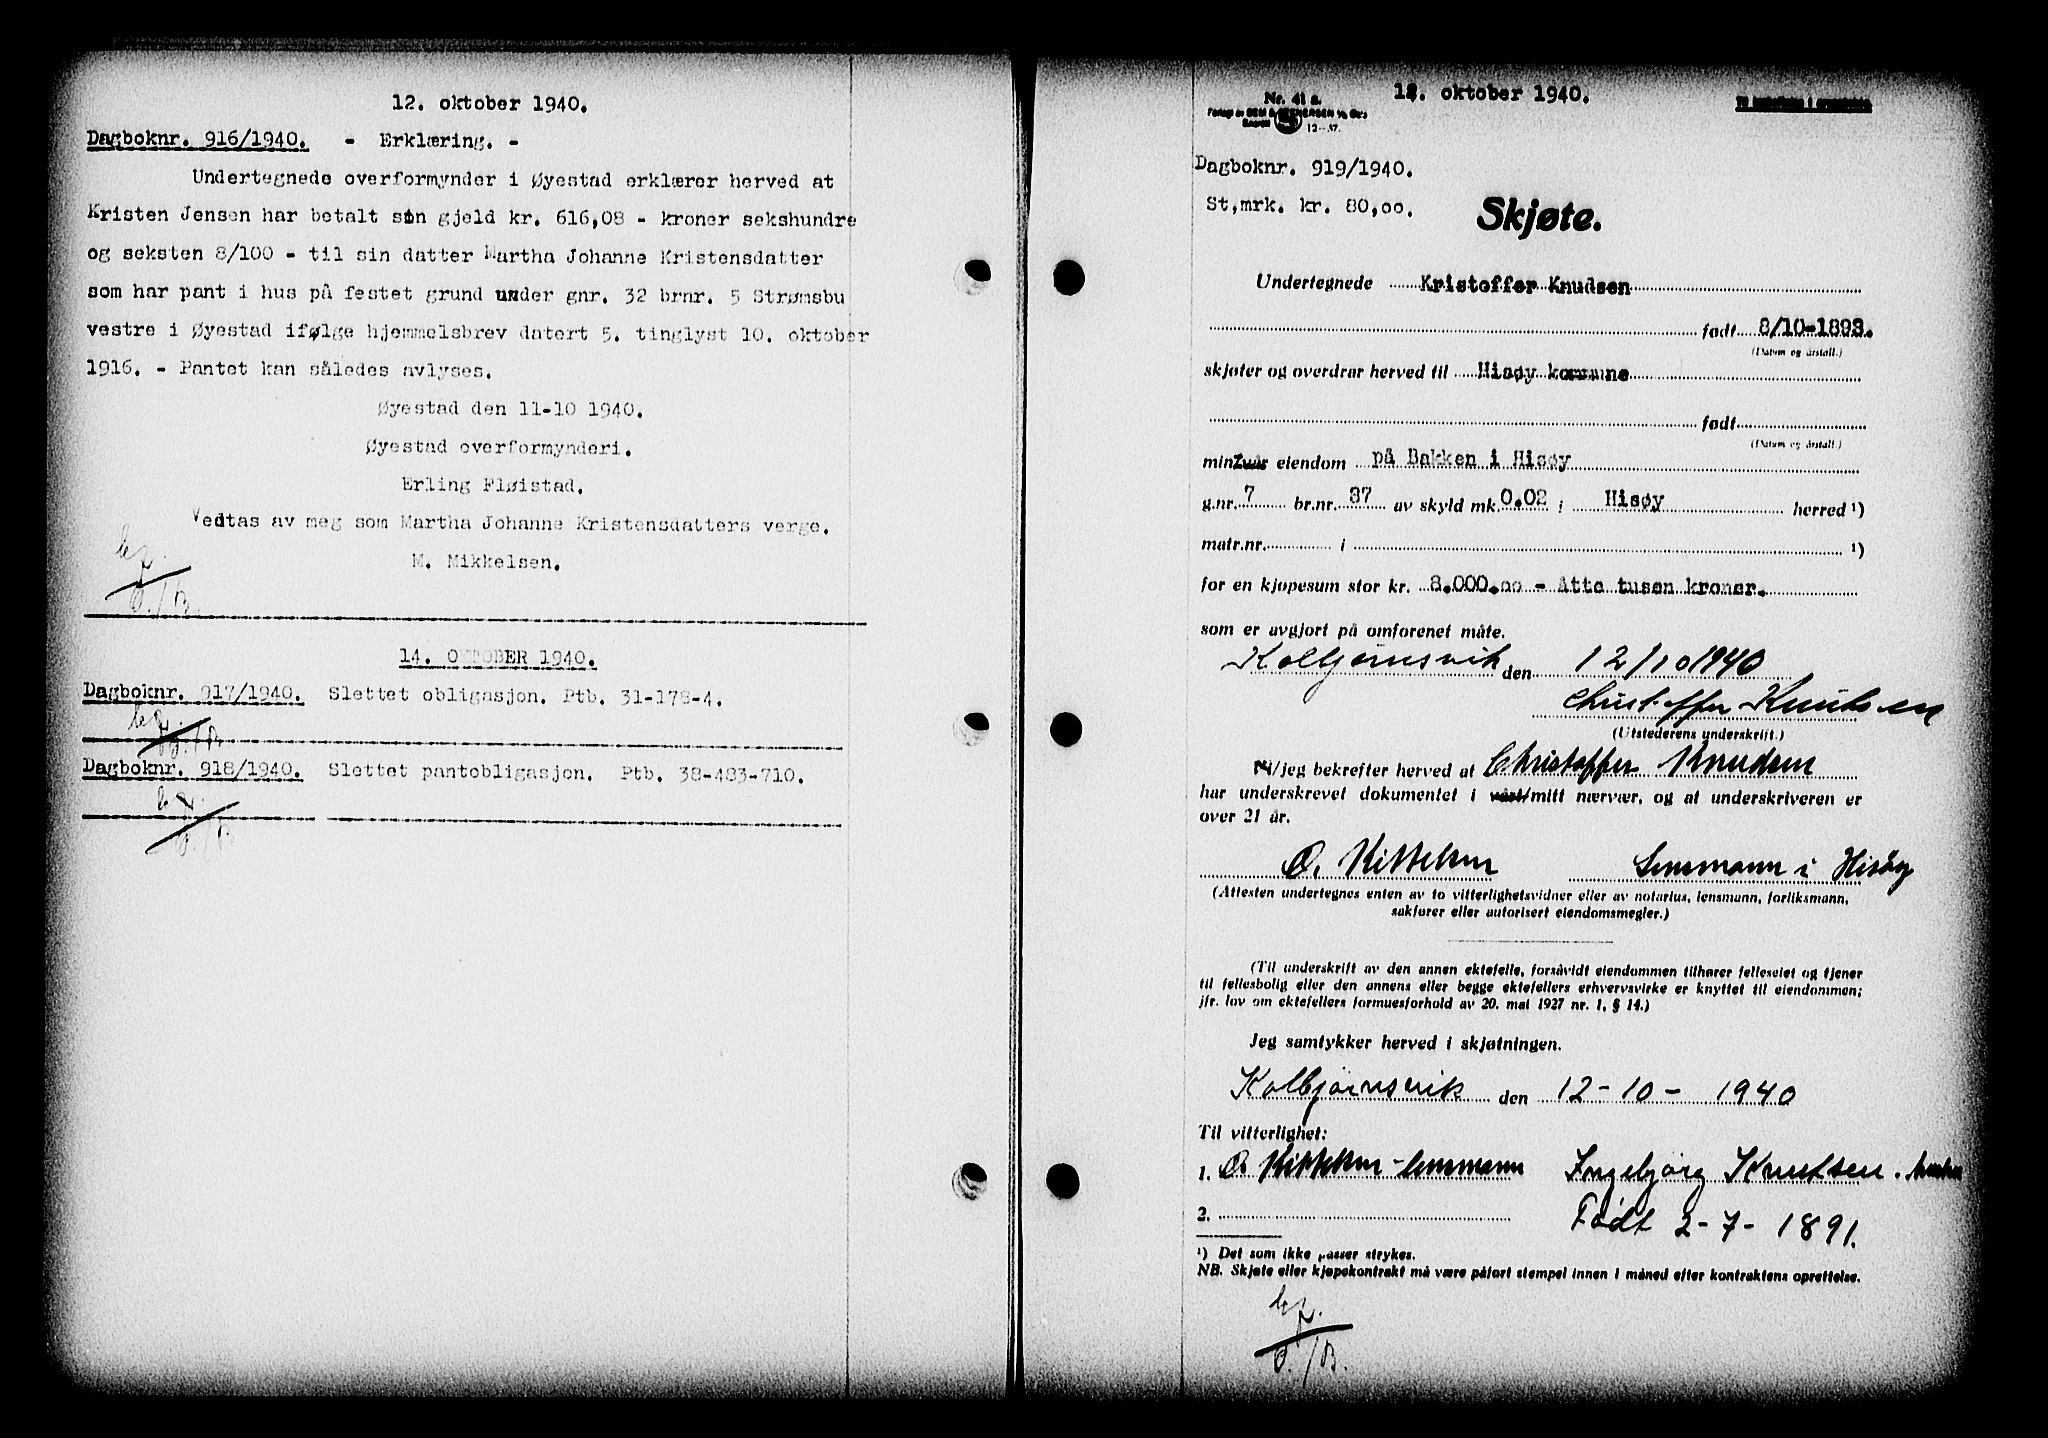 12. oktober 1940.
Dagboknr. 916/1940. - Erklæring. -
Undertegnede overformynder i Øyestad erklærer herved at
Kristen Jensen har betalt sin gjeld kr. 616,08 - kroner sekshundre
og seksten 8/100 - til sin datter Martha Johanne Kristensdatter
som har pant i hus på festet grund under gnr. 32 brnr. 5 Strømsbu
vestre i Øyestad ifølge hjemmelsbrev datert 5. tinglyst 10. oktober
1916. - Pantet kan således avlyses.
Øyestad den 11-10 1940.
Øyestad overformynderi.
Erling Fløistad.
Vedtas av meg som Martha Johanne Kristensdatters verge.
M. Mikkelsen.
14. OKTOBER 1940.
Dagboknr. 917/1940. Slettet obligasjon. Ptb. 31-178-4.
Dagboknr. 918/1940. Slettet pantobligasjon. Ptb. 38-483-710.
oktober 1940.
Nr. 41 a.
12-37.
Dagboknr. 919/1940.
St,mrk. kr. 80,oo.
Skjøte.
Undertegnede Kristoffer Knudsen
født 8/10-1893.
(Datum og årstall.)
skjøter og overdrar herved til Hisøy kommune
født
(Datum og årstall.)
min/vår eiendom på Bakken i Hisøy
g.nr. 7 br.nr. 37 av skyld mk. 0.02 i Hisøy herred ¹)
matr.nr. i ¹)
for en kjøpesum stor kr. 8.000.oo - Åtte tusen kroner.
som er avgjort på omforenet måte.
Kolbjørnsvik den 12/10 1940
Christoffer Knutsen
(Utstederens underskrift.)
Vi/jeg bekrefter herved at Christoffer Knudsen
har underskrevet dokumentet i vårt/mitt nærvær, og at underskriveren er
over 21 år.
O. Kittelsen Lensmann i Hisøy
(Attesten undertegnes enten av to vitterlighetsvidner eller av notarius, lensmann, forliksmann,
sakfører eller autorisert eiendomsmegler.)
(Til underskrift av den annen ektefelle, forsåvidt eiendommen tilhører felleseiet og tjener
til fellesbolig eller den annens eller begge ektefellers erhvervsvirke er knyttet til eiendommen;
jfr. lov om ektefellers formuesforhold av 20. mai 1927 nr. 1, § 14.)
Jeg samtykker herved i skjøtningen.
Kolbjørnsvik den 12-10-1940
Til vitterlighet:
1. O. Kittelsen - lensmann Ingebjørg Knutsen.
2. Født 2-7-1891.
¹) Det som ikke passer strykes.
NB. Skjøte eller kjøpekontrakt må være påført stempel innen 1 måned efter kontraktens oprettelse.